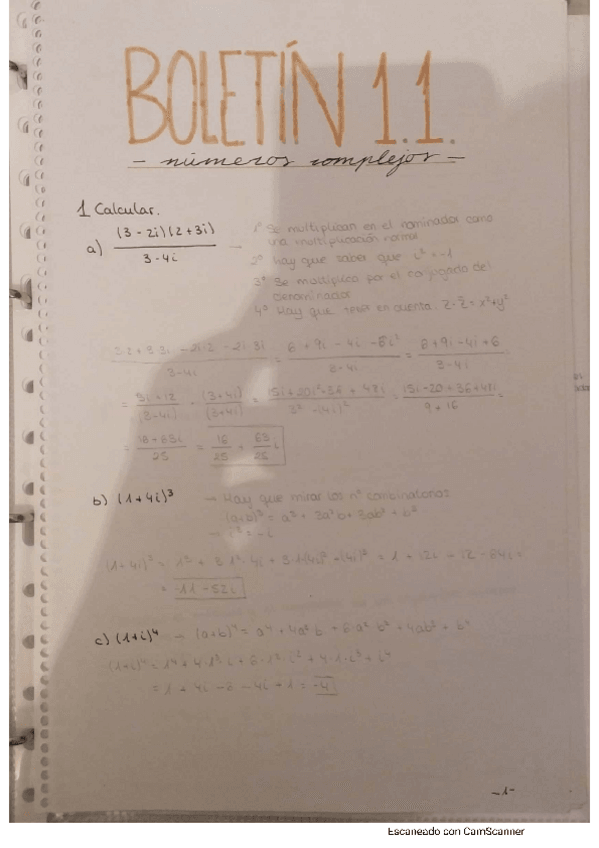 BOLETÍN 1.1.
- números complejos -
1 Calcular.
a) (3-2i)(2+3i) / 3-4i
1º Se multiplican en el nominador como
una multiplicación normal
2º Hay que saber que i²=-1
3º Se multiplica por el conjugado del
denominador
4º Hay que tener en cuenta: z·z̄=x²+y²
= 6+9i-4i-6i² / 3-4i = 6+9i-4i+6 / 3-4i
= 5i+12 / (3-4i) · (3+4i) / (3+4i) = 15i+20i²+36+48i / 3²-(4i)² = 15i-20+36+48i / 9+16 =
= 16+63i / 25 = 16/25 + 63/25 i
b) (1+4i)³ → Hay que mirar los nº combinatorios
(a+b)³ = a³+3a²b+3ab²+b³
(1+4i)³ = 1³+3·1²·4i+3·1(4i)²+(4i)³ = 1+12i
c) (1+i)⁴ →
(1+i)⁴ = 1⁴+4·1³·i+6·1²·i²+4·1·i³+i⁴
= 1+4i-6-4i+1 = -4
-1-
Escaneado con CamScanner